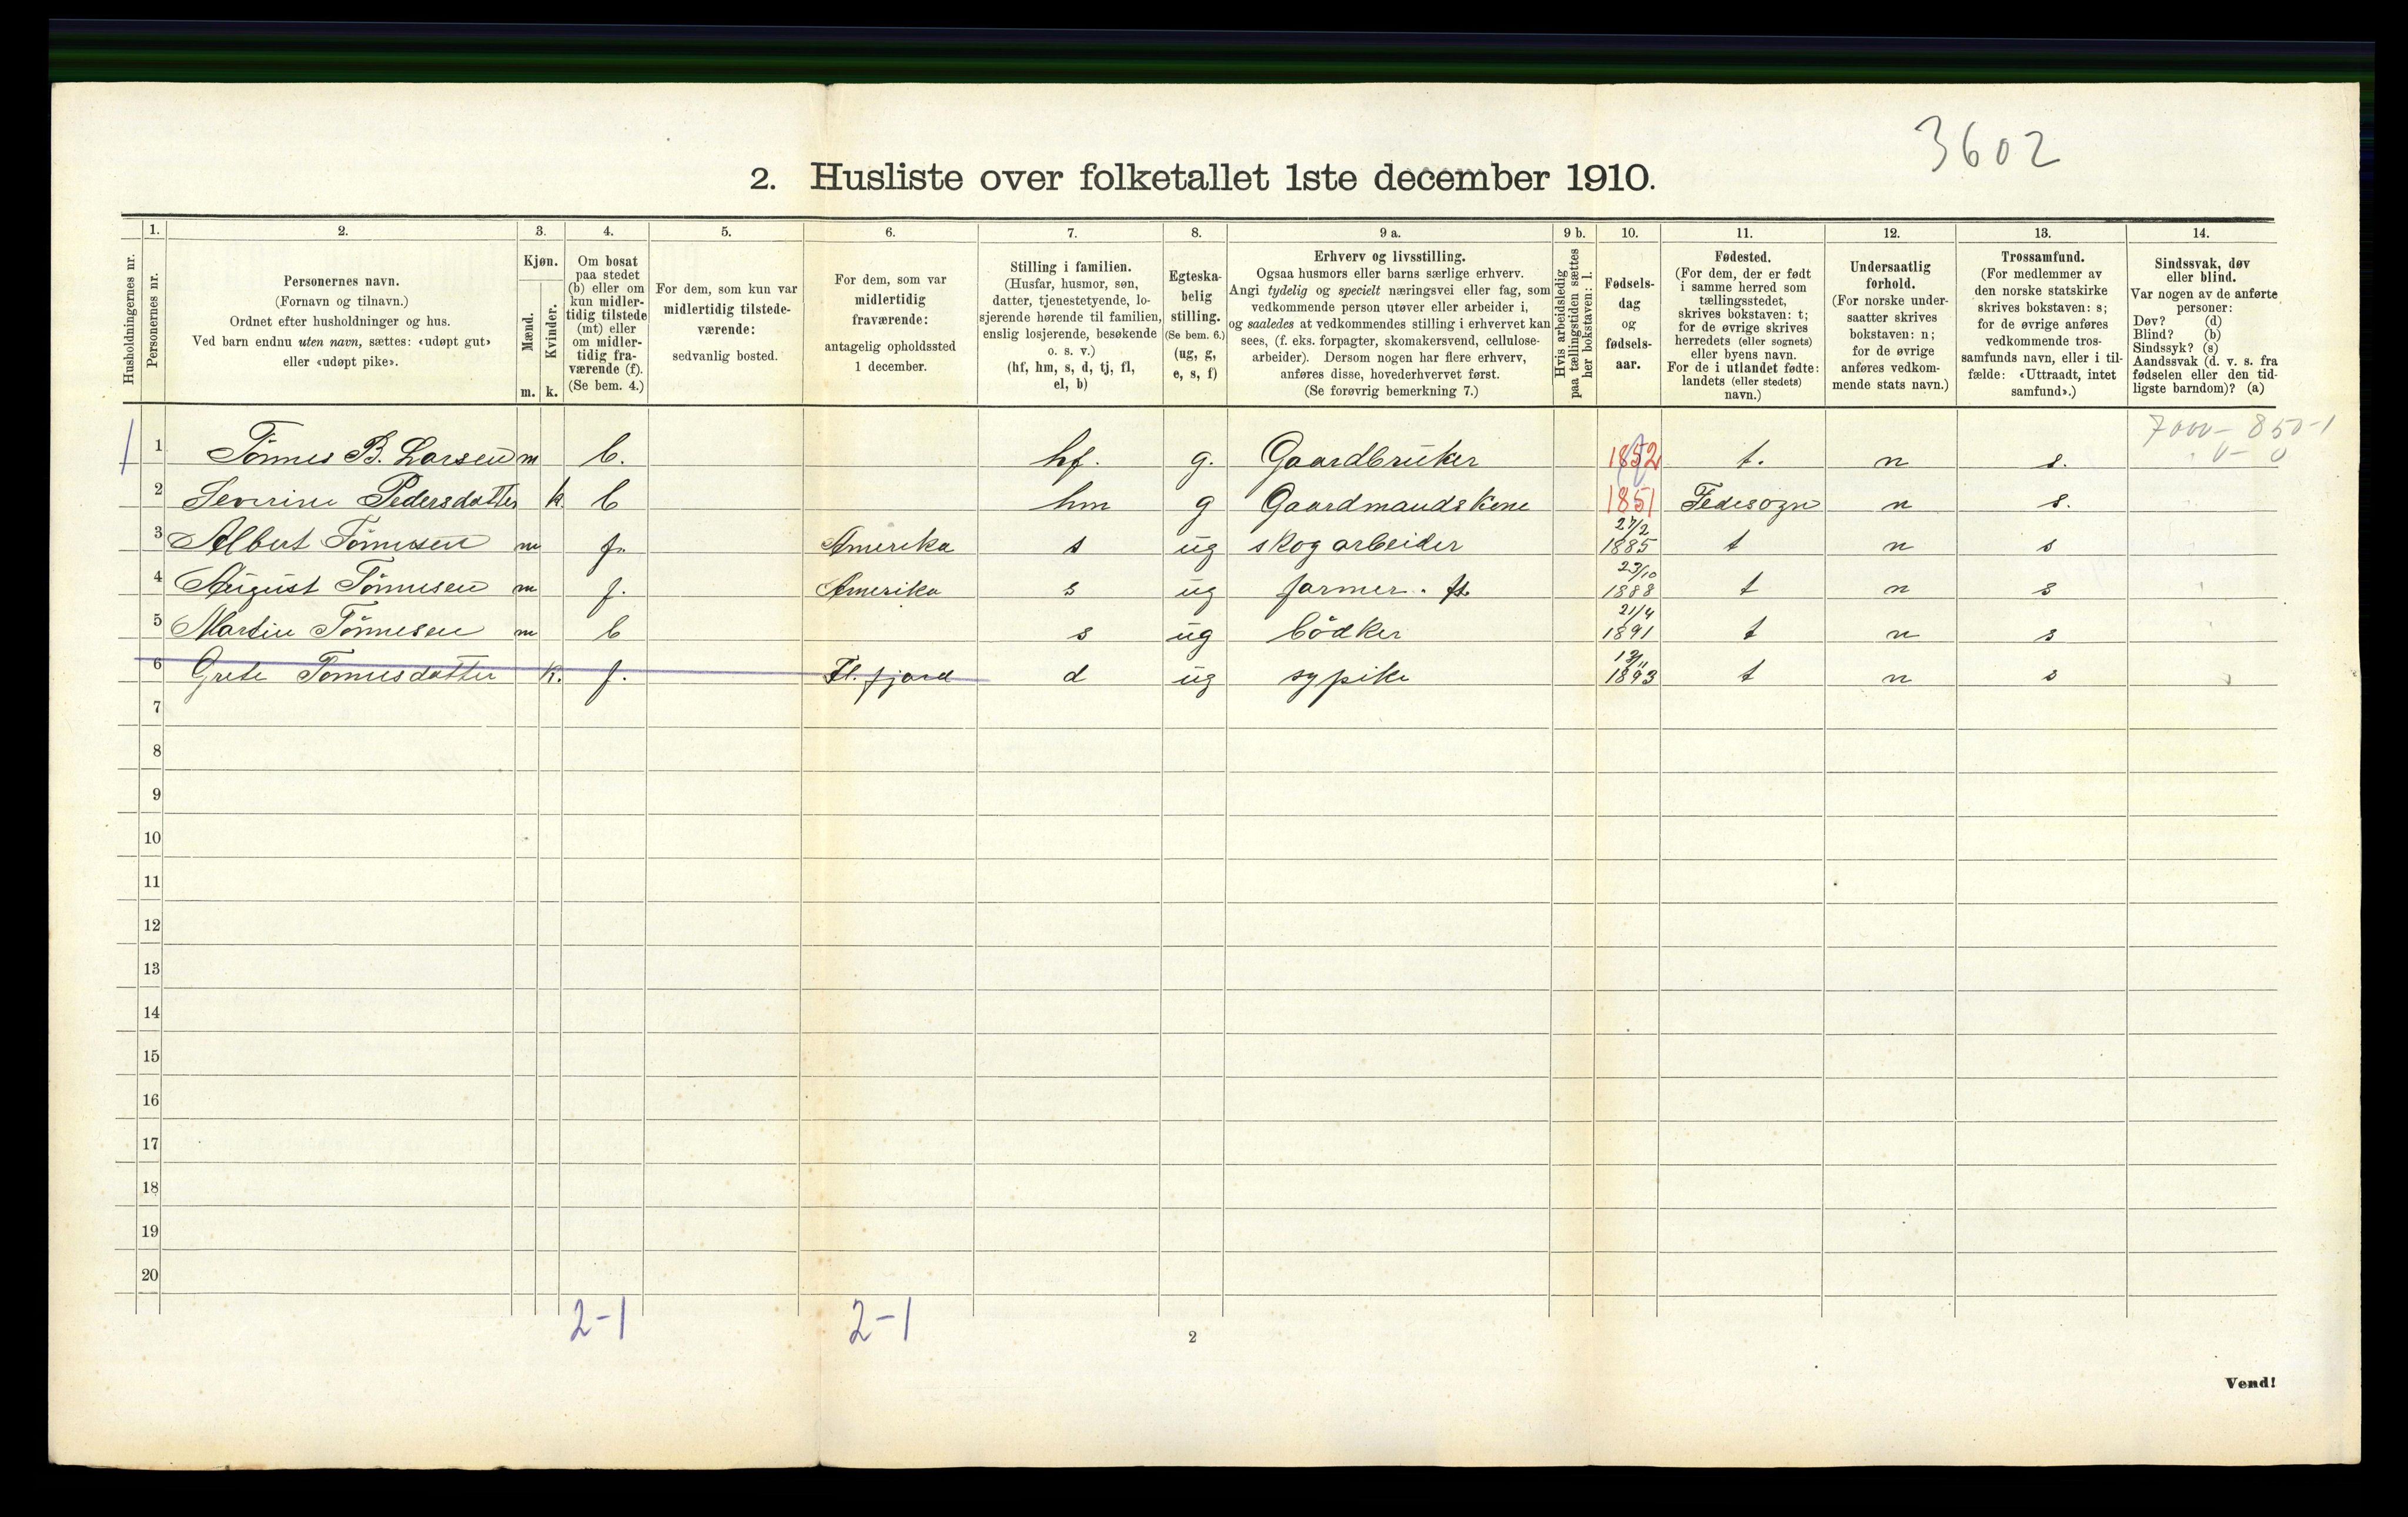 3602
2. Husliste over folketallet 1ste december 1910.
Husholdningernes nr.
1.
Personernes nr.
2.
Personernes navn.
(Fornavn og tilnavn.)
Ordnet efter husholdninger og hus.
Ved barn endnu uten navn, sættes: «udøpt gut»
eller «udøpt pike».
3.
Kjøn.
Mænd.
Kvinder.
m. k.
4.
Om bosat
paa stedet
(b) eller om
kun midler-
tidig tilstede
(mt) eller
om midler-
tidig fra-
værende (f).
(Se bem. 4.)
5.
For dem, som kun var
midlertidig tilstede-
værende:
sedvanlig bosted.
6.
For dem, som var
midlertidig
fraværende:
antagelig opholdssted
1 december.
7.
Stilling i familien.
(Husfar, husmor, søn,
datter, tjenestetyende, lo-
sjerende hørende til familien,
enslig losjerende, besøkende
o. s. v.)
(hf, hm, s, d, tj, fl,
el, b)
8.
Egteska-
belig
stilling.
(Se bem. 6.)
(ug, g,
e, s, f)
9 a.
Erhverv og livsstilling.
Ogsaa husmors eller barns særlige erhverv.
Angi tydelig og specielt næringsvei eller fag, som
vedkommende person utøver eller arbeider i,
og saaledes at vedkommendes stilling i erhvervet kan
sees, (f. eks. forpagter, skomakersvend, cellulose-
arbeider). Dersom nogen har flere erhverv,
anføres disse, hovederhvervet først.
(Se forøvrig bemerkning 7.)
9 b.
Hvis arbeidsledig
paa tællingstiden sættes
her bokstaven: l.
10.
Fødsels-
dag
og
fødsels-
aar.
11.
Fødested.
(For dem, der er født
i samme herred som
tællingsstedet,
skrives bokstaven: t;
for de øvrige skrives
herredets (eller sognets)
eller byens navn.
For de i utlandet fødte:
landets (eller stedets)
navn.)
12.
Undersaatlig
forhold.
(For norske under-
saatter skrives
bokstaven: n;
for de øvrige
anføres vedkom-
mende stats navn.)
13.
Trossamfund.
(For medlemmer av
den norske statskirke
skrives bokstaven: s;
for de øvrige anføres
vedkommende tros-
samfunds navn, eller i til-
fælde: «Uttraadt, intet
samfund».)
14.
Sindssvak, døv
eller blind.
Var nogen av de anførte
personer:
Døv? (d)
Blind? (b)
Sindssyk? (s)
Aandssvak (d. v. s. fra
fødselen eller den tid-
ligste barndom)? (a)
7000 - 850-1
0 - 0
1 Tönnes B. Larsen m b. hf. g. Gaardbruker 1852 t. n s.
2 Severine Pedersdatter k. b hm g Gaardmandskone 1851 Fedesogn n s.
3 Albert Tönnesen m f. Amerika s ug skogarbeider 27/2 1885 t n s
4 August Tönnesen m f. Amerika s ug farmer. 23/10 1888 t n s
5 Martin Tönnesen m b s ug bödker 21/4 1891 t n s
6 Grete Tönnesdatter k. f. Fl. fjord d ug sypike 1893 t n s
7
8
9
10
11
12
13
14
15
16
17
18
19
20
2-1 2-1
2
Vend!